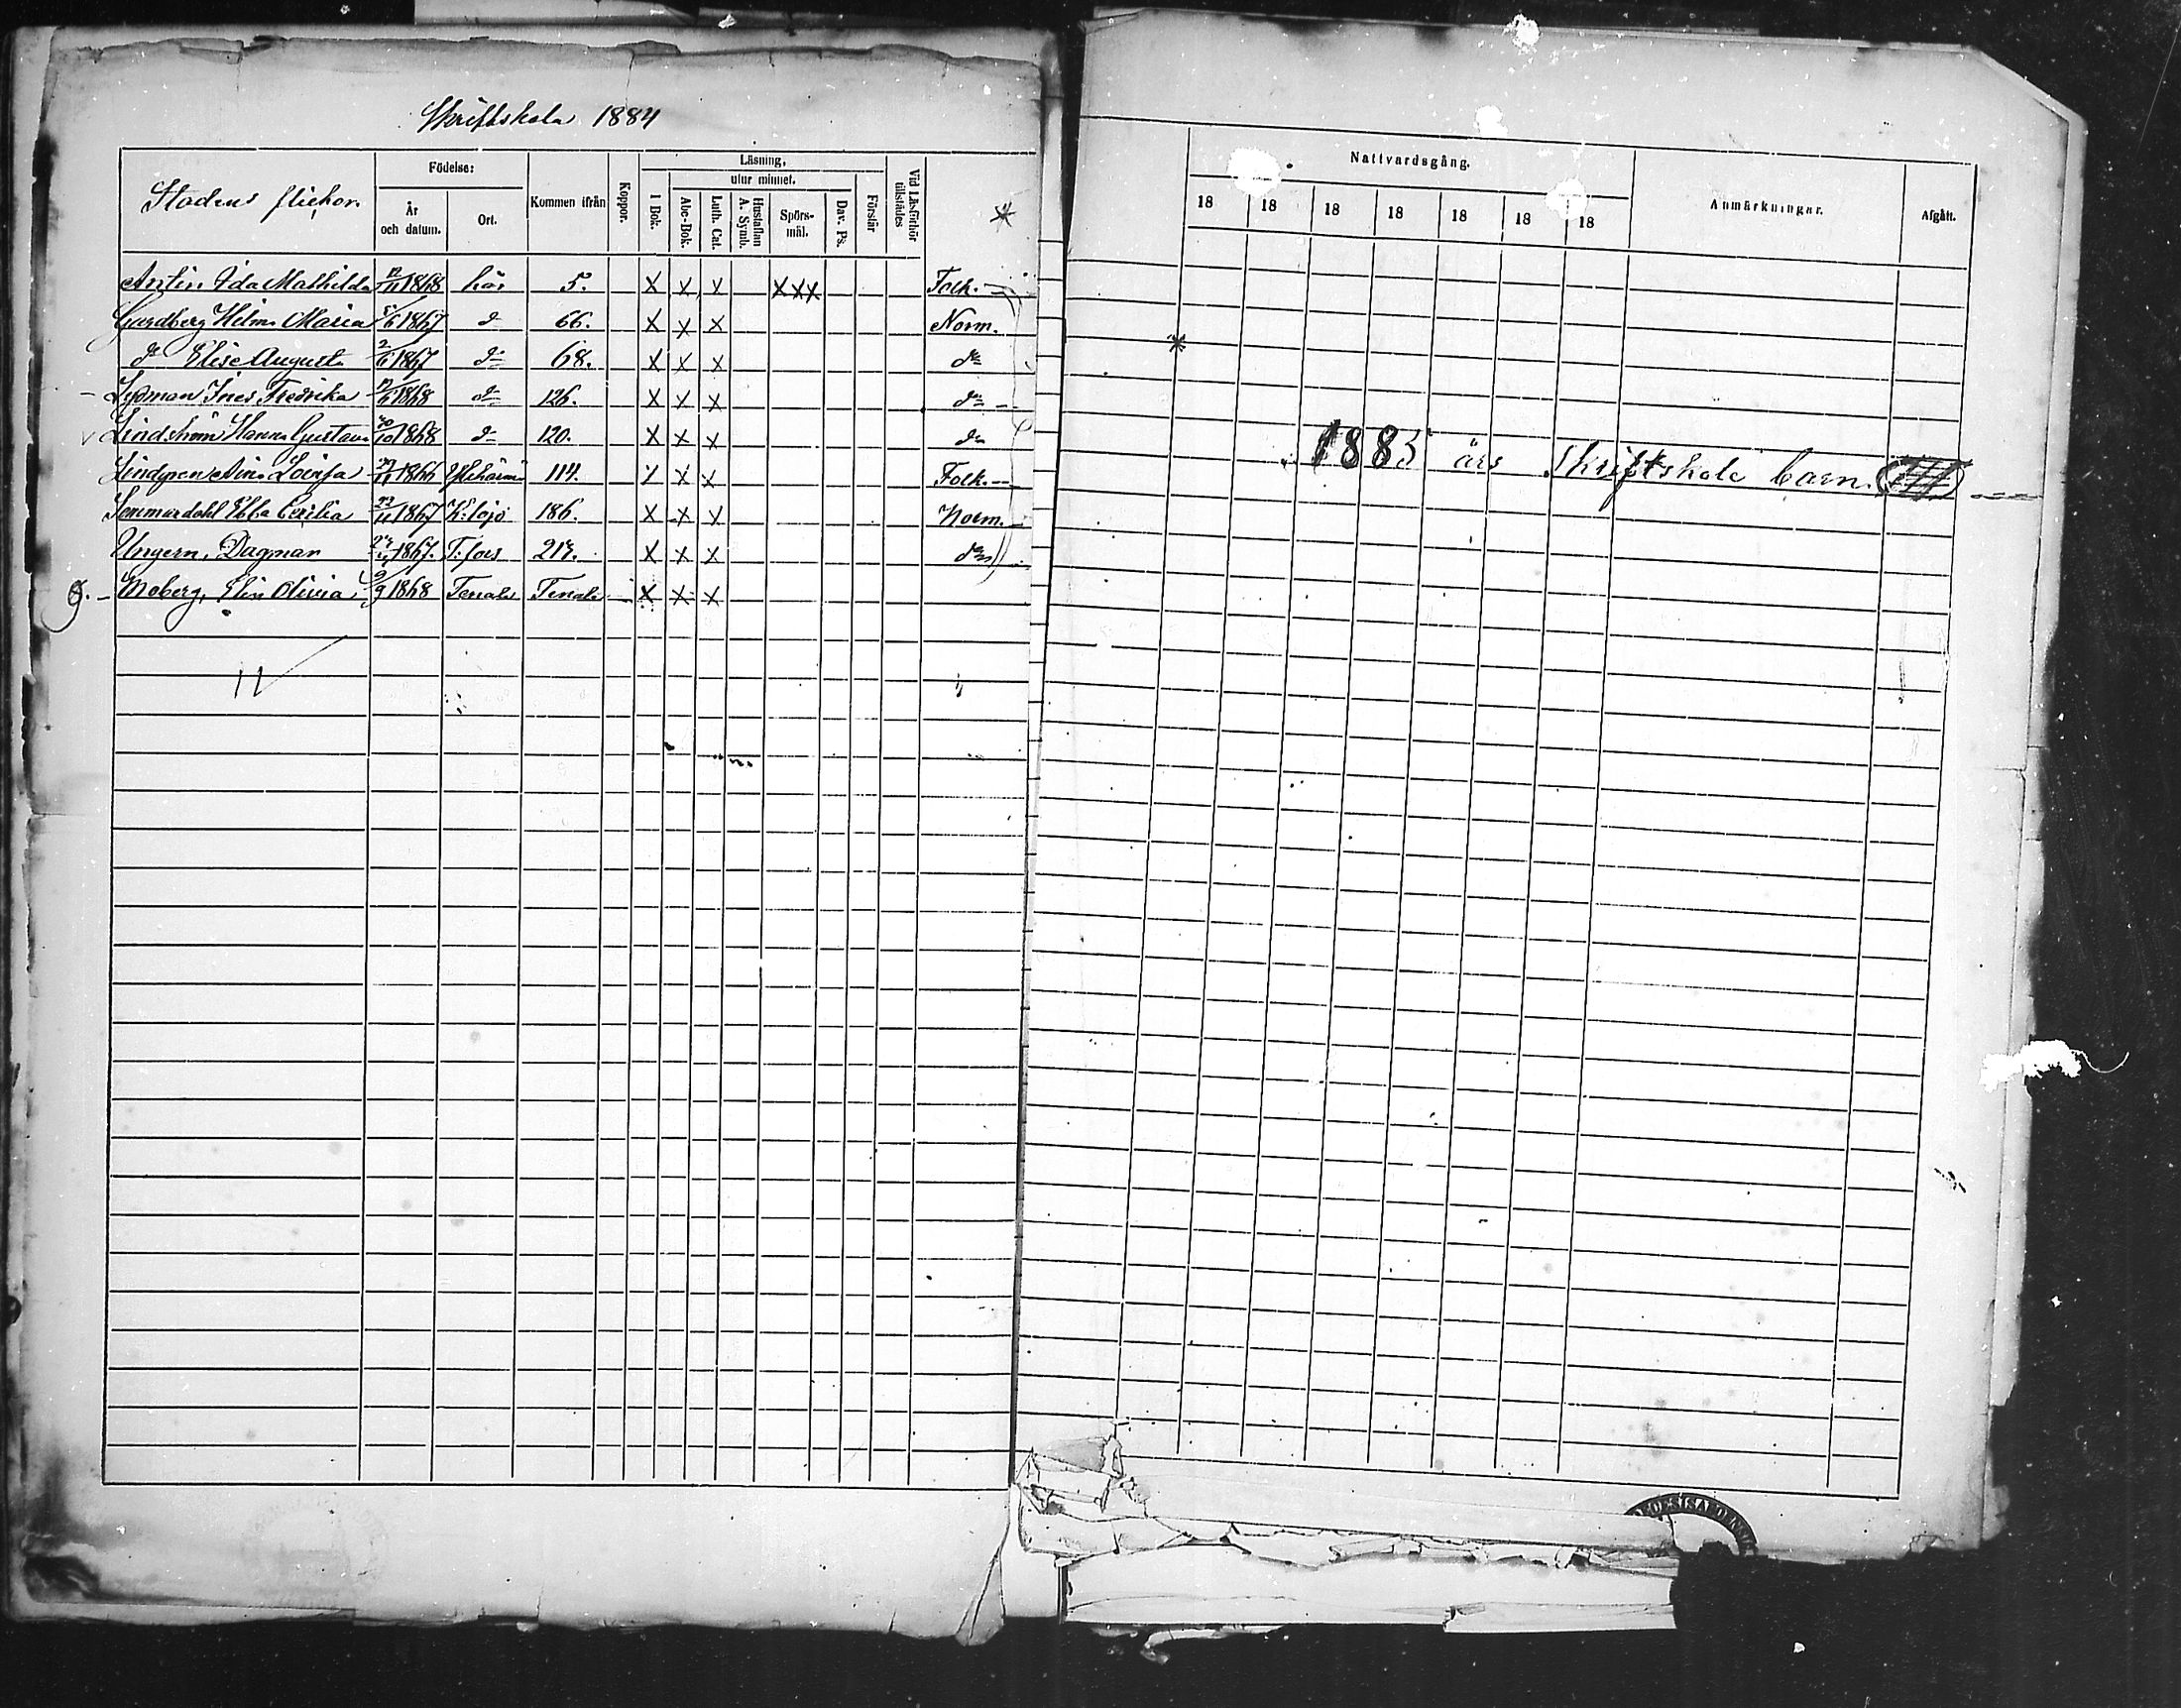 Skriftskola 1884
Stadens flickor.
Födelse:
År och datum.
Ort.
Kommen ifrån
Koppor.
Läsning,
I Bok.
utur minnet.
Abc-Bok.
Luth. Cat.
Hustaflan A. Symb.
Spörs-mål.
Dav. Ps.
Förstår
Vid Läsförhör tillstädes
Antin Ida Mathilda 1868 här 5. X X X XXX Folk.
Gardberg Helm. Maria 5/6 1867 d:o 66. X X X Norm.
d:o Elise August. 2/6 1867 d:o 68. X X X d:o
Fredrika 1868 d:o 126. X X X d:o
Lindström Hanna Gustava 1868 d:o 120. X X X d:o
Lindgren Lovisa 1866 114. X X X Folk.
Sommardahl Ebba Cecilia 1867 K:lojo 186. X X X Norm.
Ungern, Dagmar 1867. T:fors X X X d:o
Moberg, Elin Olivia 9/9 1868 Tenala Tenala X X X
11
Nattvardsgång.
18 18 18 18 18 18 18
Anmärkningar.
Afgått.
1885 års Skriftskole barn.